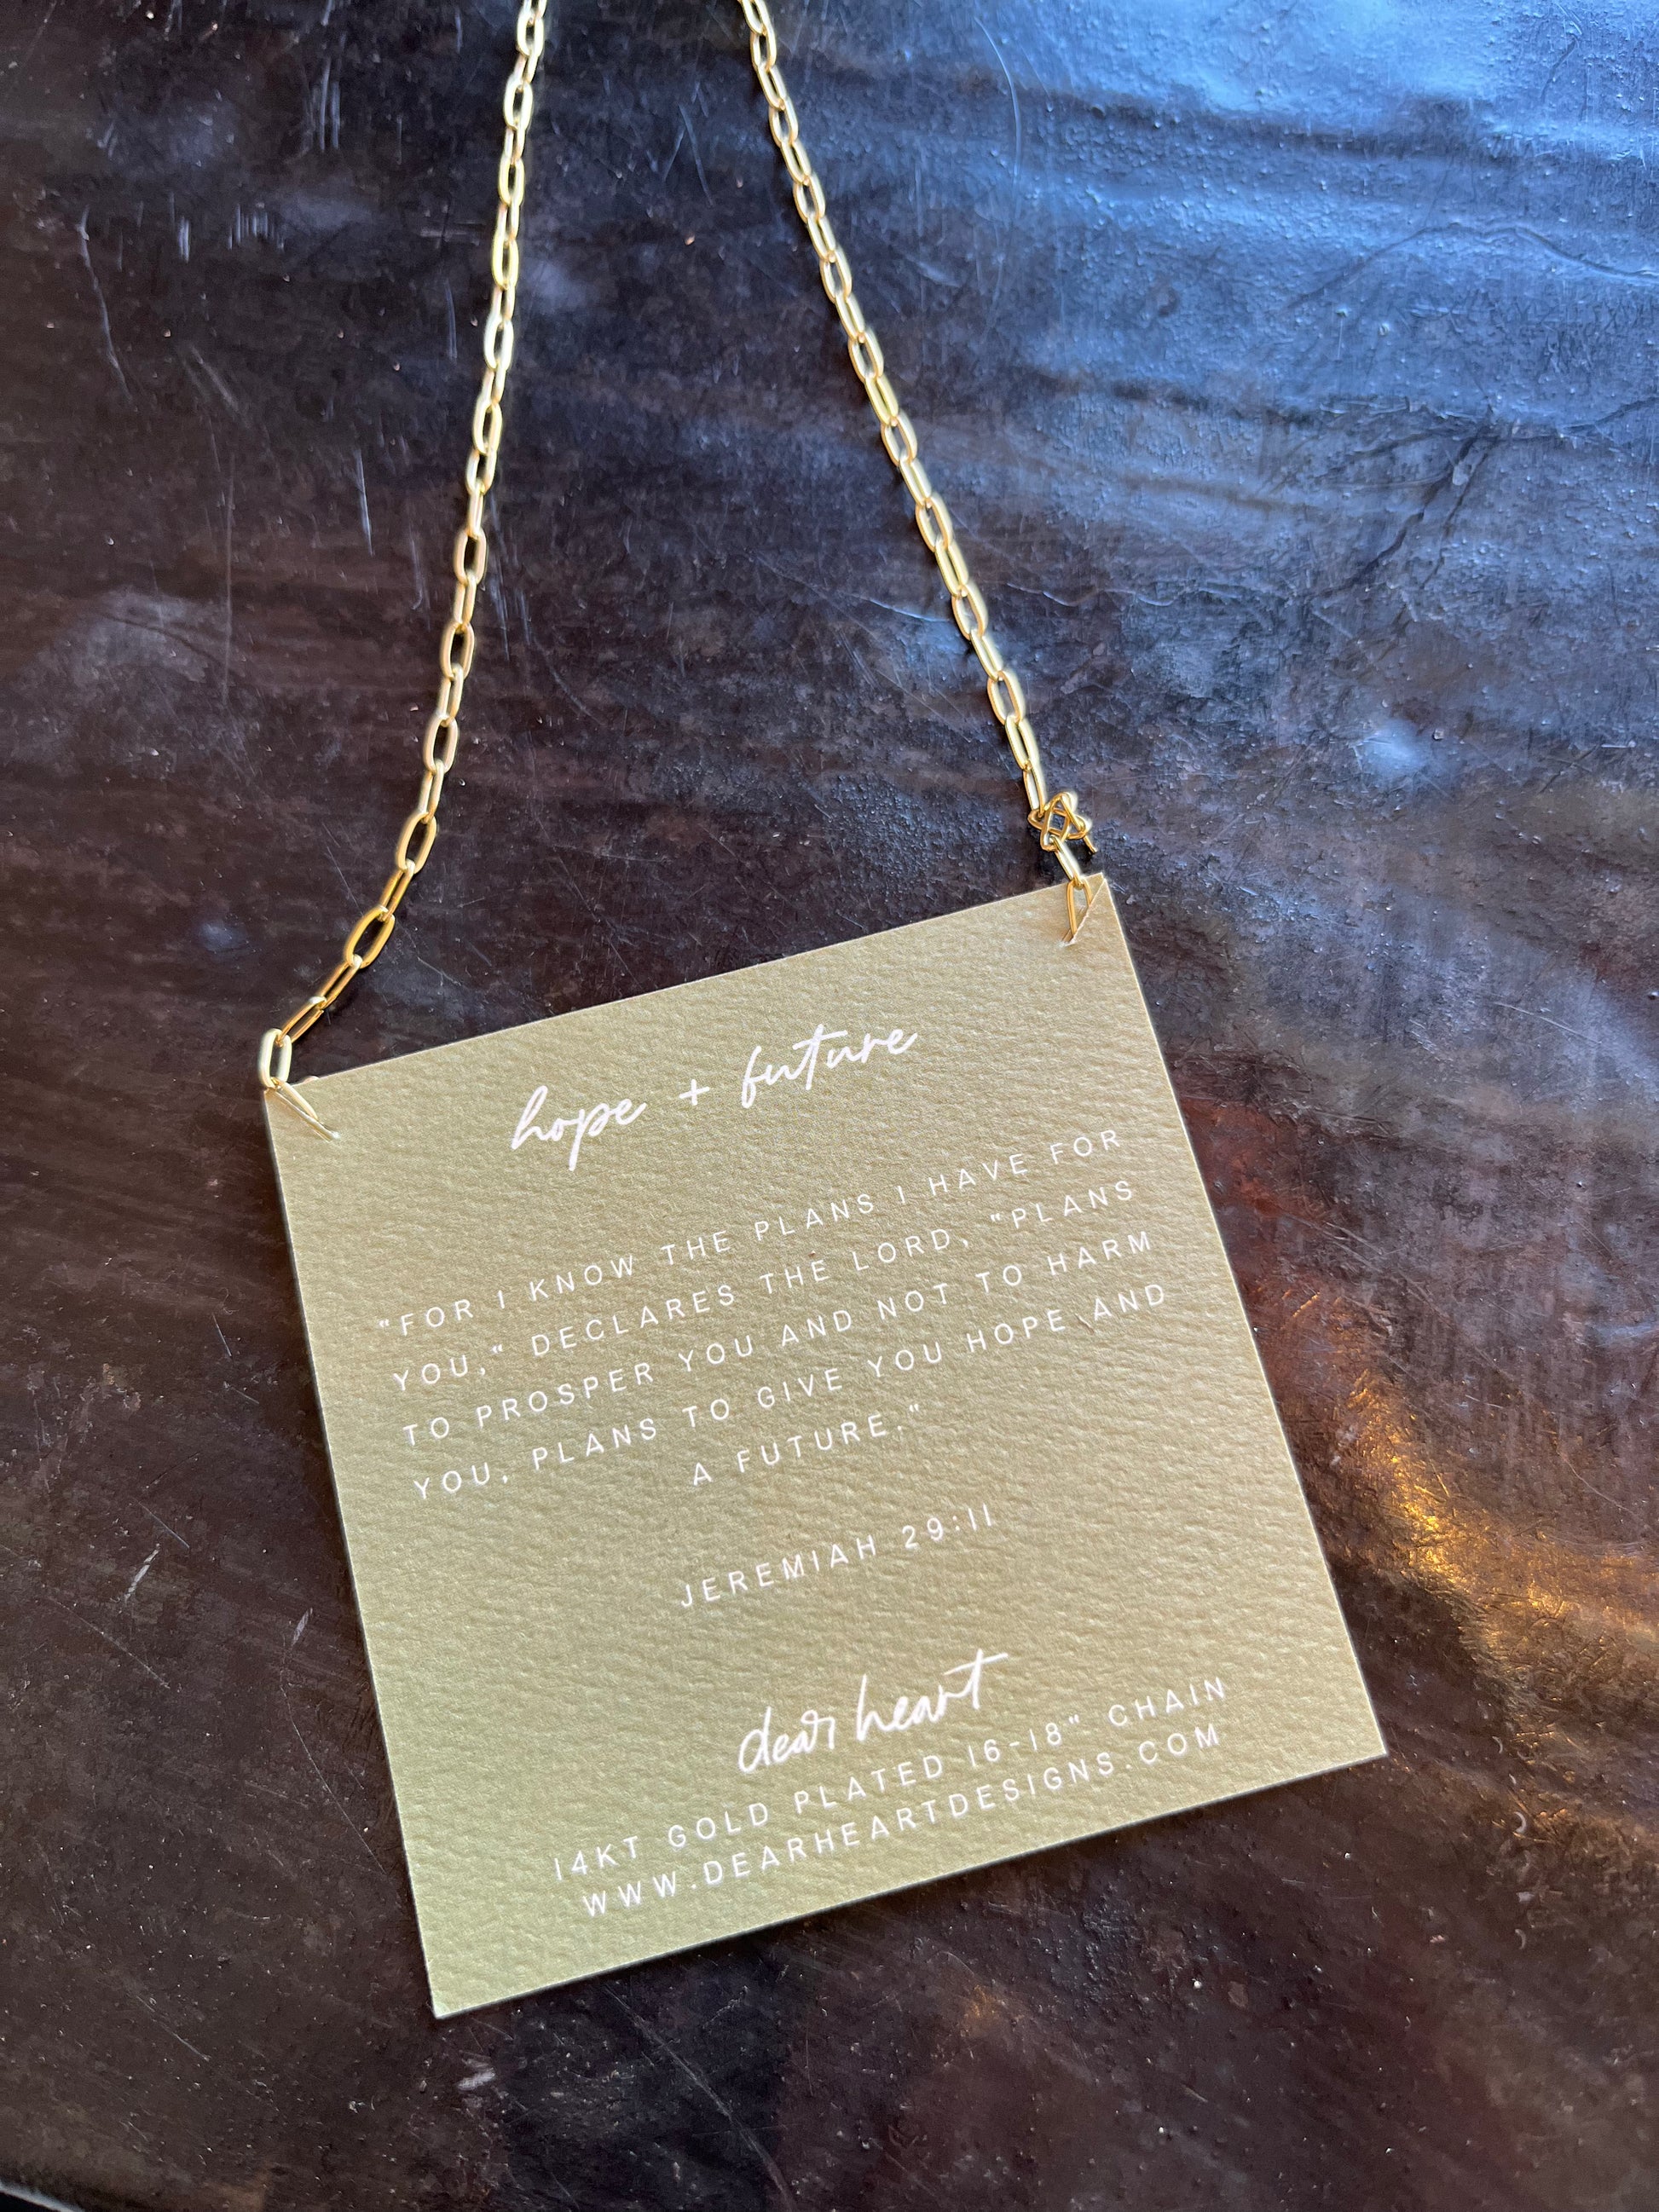 hope + future
"FOR I KNOW THE PLANS I HAVE FOR
YOU," DECLARES THE LORD, "PLANS
TO PROSPER YOU AND NOT TO HARM
YOU, PLANS TO GIVE YOU HOPE AND
A FUTURE."
JEREMIAH 29:11
dear heart
14KT GOLD PLATED 16-18" CHAIN
WWW.DEARHEARTDESIGNS.COM